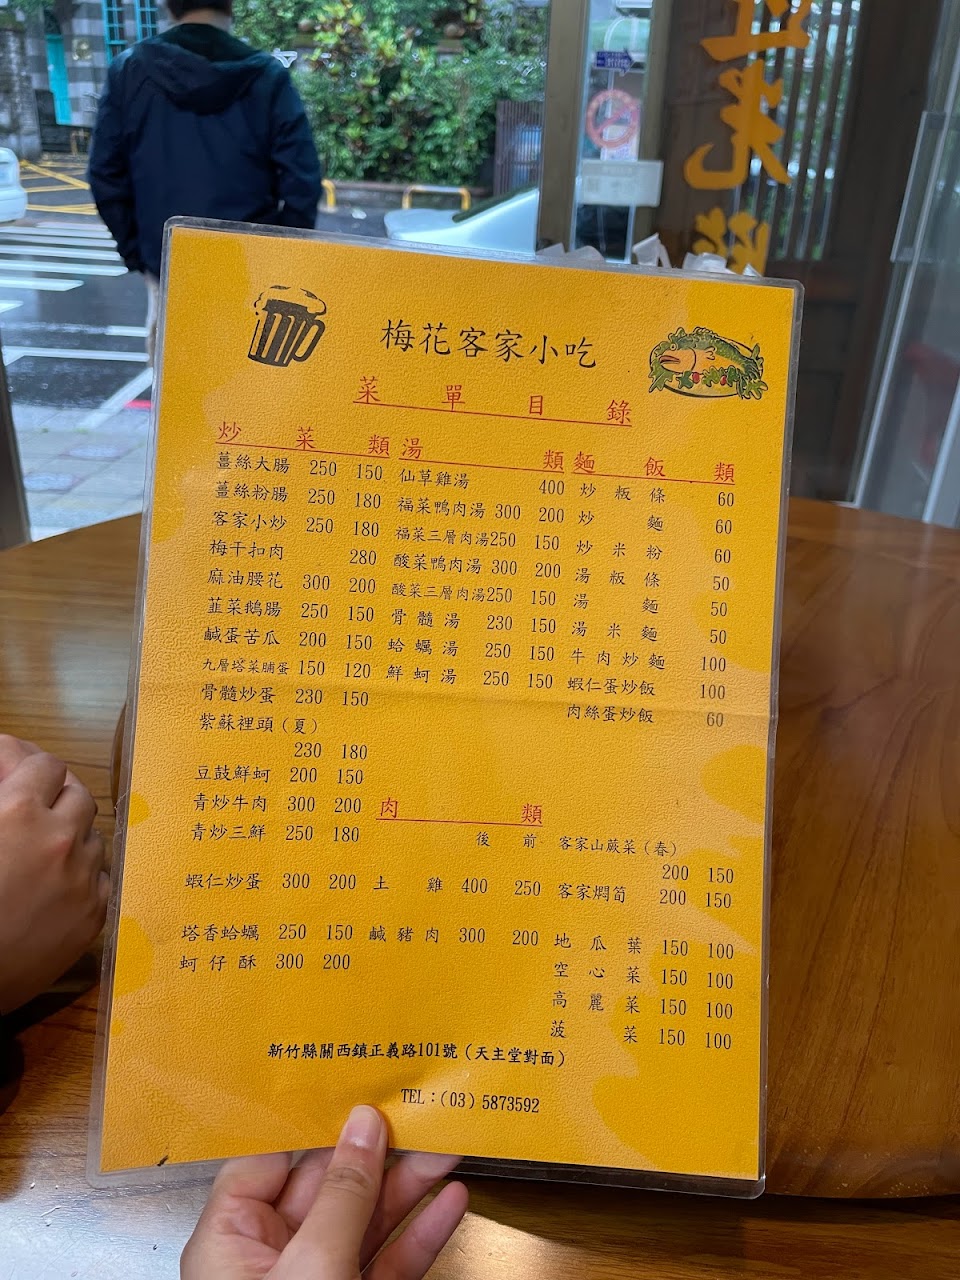 梅花客家小吃
菜單目錄
炒菜類
薑絲大腸 250 150
薑絲粉腸 250 180
客家小炒 250 180
梅干扣肉 280
麻油腰花 300 200
韮菜鵝腸 250 150
鹹蛋苦瓜 200 150
九層塔菜脯蛋 150 120
骨髓炒蛋 230 150
紫蘇裡頭(夏)
230 180
豆鼓鮮蚵 200 150
青炒牛肉 300 200
青炒三鮮 250 180
蝦仁炒蛋 300 200
塔香蛤蠣 250 150
蚵仔酥 300 200
湯類
仙草雞湯 400
福菜鴨肉湯 300 200
福菜三層肉湯 250 150
酸菜鴨肉湯 300 200
酸菜三層肉湯 250 150
骨髓湯 230 150
蛤蠣湯 250 150
鮮蚵湯 250 150
肉類
後 前
土雞 400 250
鹹豬肉 300 200
麵飯類
炒粄條 60
炒麵 60
炒米粉 60
湯粄條 50
湯麵 50
湯米麵 50
牛肉炒麵 100
蝦仁蛋炒飯 100
肉絲蛋炒飯 60
客家山蕨菜(春)
200 150
客家燜筍 200 150
地瓜葉 150 100
空心菜 150 100
高麗菜 150 100
菠菜 150 100
新竹縣關西鎮正義路101號(天主堂對面)
TEL:(03)5873592